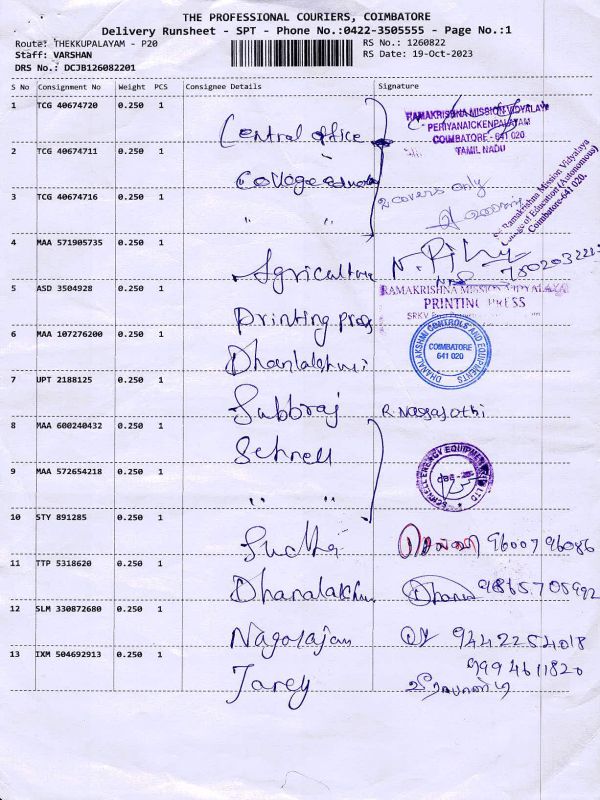 THE PROFESSIONAL COURIERS, COIMBATORE
Delivery Runsheet - SPT - Phone No.:0422-3505555 - Page No.:1
Route: THEKKUPALAYAM - P20
Staff: VARSHAN
DRS No.: DCJB126082201
RS No.: 1260822
RS Date: 19-Oct-2023
S No Consignment No Weight PCS Consignee Details Signature
1 TCG 40674720 0.250 1
Central office
RAMAKRISHNA MISSION VIDYALAYA
PERIYANAICKENPALAYAM
COIMBATORE - 641 020
TAMIL NADU
2 TCG 40674711 0.250 1
College
2 covers only
3 TCG 40674716 0.250 1
" "
Sri Ramakrishna Mission Vidyalaya
College of Education (Autonomous)
Coimbatore-641 020.
4 MAA 571905735 0.250 1
Agriculture
5 ASD 3504928 0.250 1
Printing press
RAMAKRISHNA MISSION VIDYALAYA
PRINTING PRESS
6 MAA 107276200 0.250 1
Dhanlakshmi
DHANALAKSHMI CONTROLS AND EQUIPMENTS
COIMBATORE
641 020
7 UPT 2188125 0.250 1
Subbraj
8 MAA 600240432 0.250 1
Schnell
SCHNELL ENERGY EQUIPMENTS PVT LTD
9 MAA 572654218 0.250 1
" "
10 STY 891285 0.250 1
Sudha 9600796086
11 TTP 5318620 0.250 1
Dhanalakshmi 9865705992
12 SLM 330872680 0.250 1
Nagarajan 9442254018
13 IXM 504692913 0.250 1
Jarey 9994611820